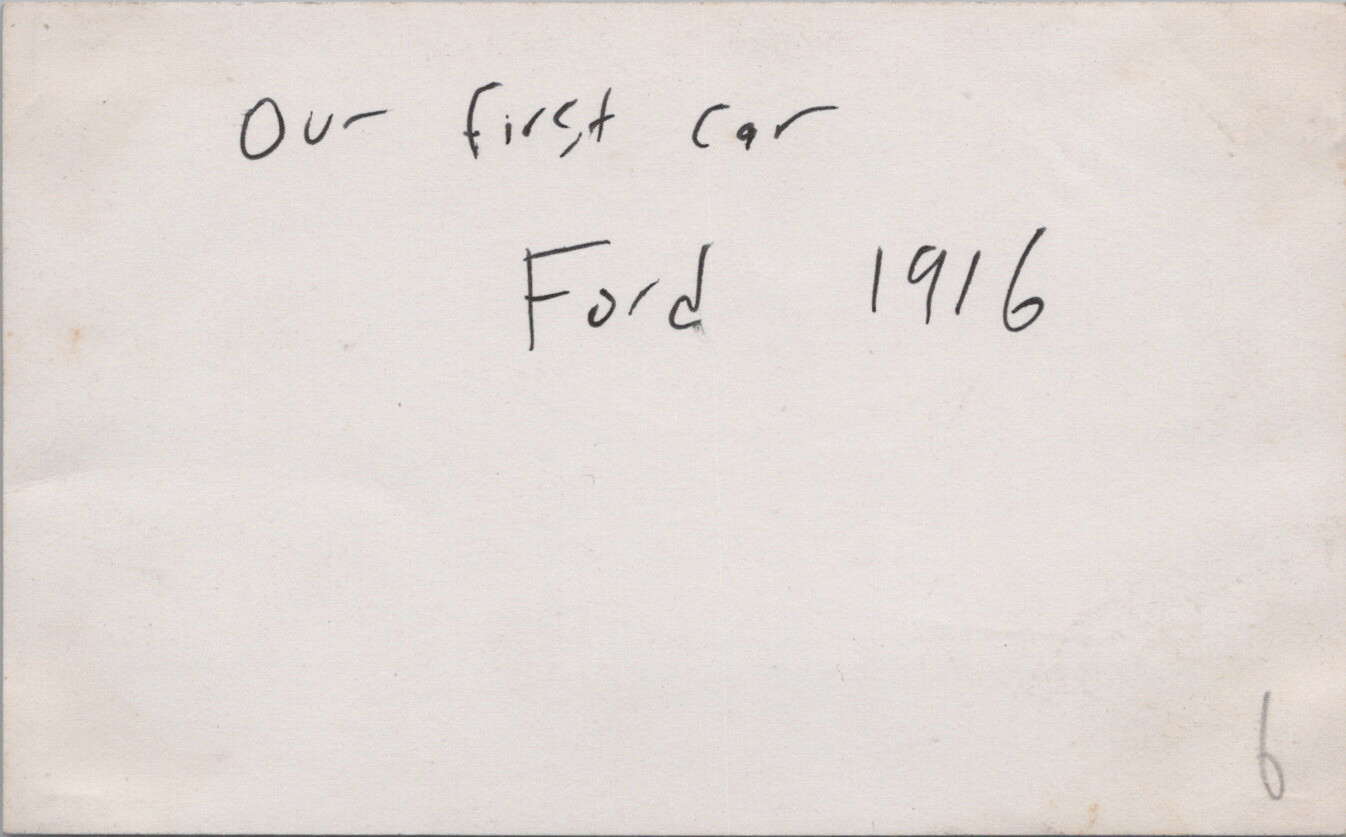 Our first car
Ford 1916
6